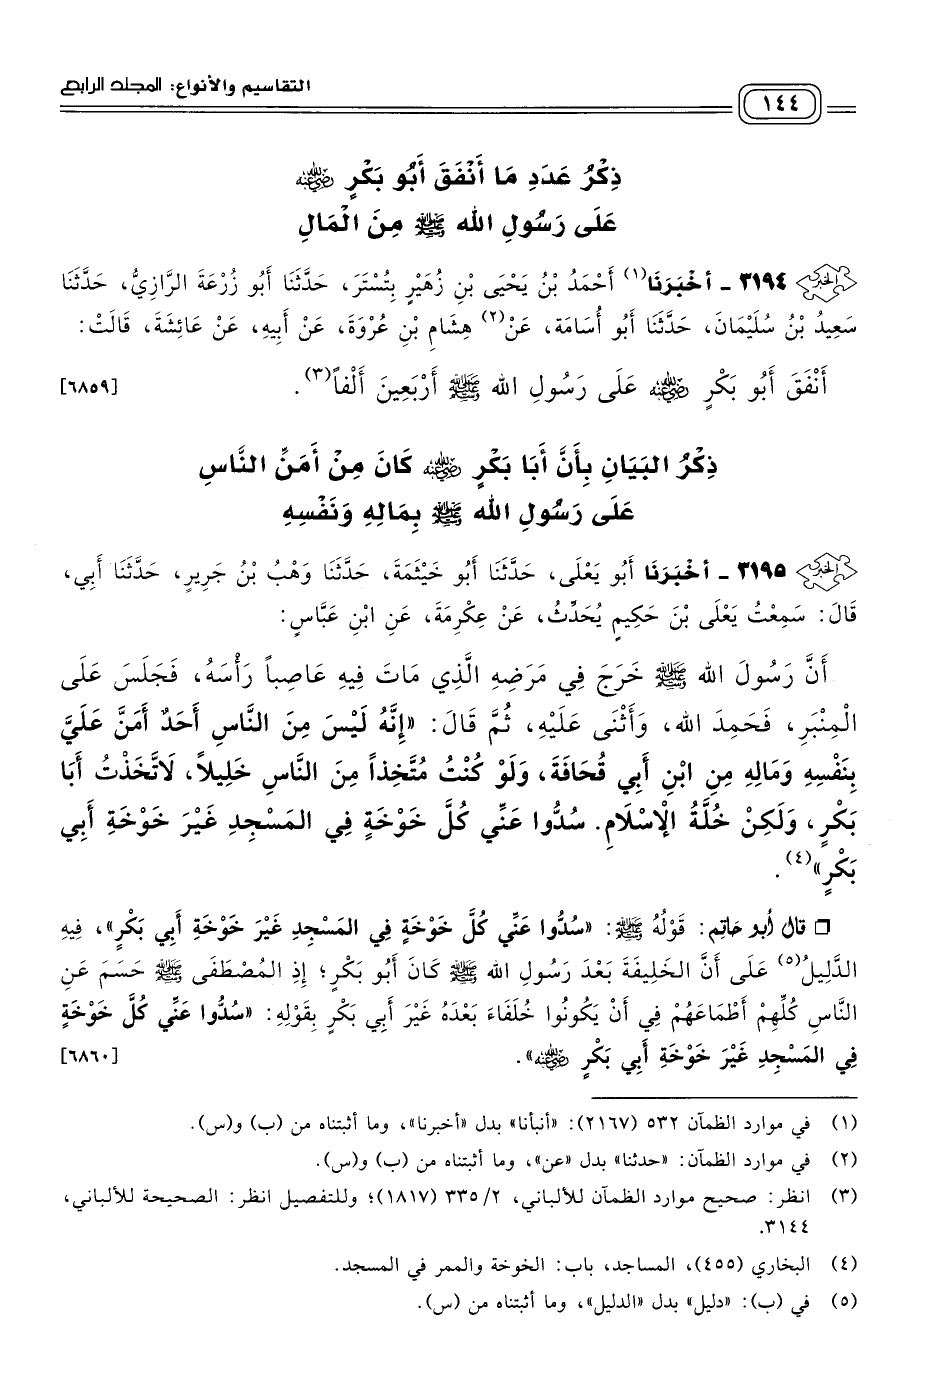 التقاسيم والأنواع: المجلد الرابع
١٤٤
ذِكْرُ عَدَدِ مَا أَنْفَقَ أَبُو بَكْرٍ رضي الله عنه
عَلَى رَسُولِ الله ﷺ مِنَ الْمَالِ
٣١٩٤ ـ أخْبَرَنَا(١) أَحْمَدُ بْنُ يَحْيَى بْنِ زُهَيْرٍ بِتُسْتَرَ، حَدَّثَنَا أَبُو زُرْعَةَ الرَّازِيُّ، حَدَّثَنَا
سَعِيدُ بْنُ سُلَيْمَانَ، حَدَّثَنَا أَبُو أُسَامَةَ، عَنْ(٢) هِشَامِ بْنِ عُرْوَةَ، عَنْ أَبِيهِ، عَنْ عَائِشَةَ، قَالَتْ:
أَنْفَقَ أَبُو بَكْرٍ رضي الله عنه عَلَى رَسُولِ الله ﷺ أَرْبَعِينَ أَلْفاً(٣). [٦٨٥٩]
ذِكْرُ البَيَانِ بِأَنَّ أَبَا بَكْرٍ رضي الله عنه كَانَ مِنْ أَمَنِّ النَّاسِ
عَلَى رَسُولِ الله ﷺ بِمَالِهِ وَنَفْسِهِ
٣١٩٥ ـ أخْبَرَنَا أَبُو يَعْلَى، حَدَّثَنَا أَبُو خَيْثَمَةَ، حَدَّثَنَا وَهْبُ بْنُ جَرِيرٍ، حَدَّثَنَا أَبِي،
قَالَ: سَمِعْتُ يَعْلَى بْنَ حَكِيمٍ يُحَدِّثُ، عَنْ عِكْرِمَةَ، عَنِ ابْنِ عَبَّاسٍ:
أَنَّ رَسُولَ الله ﷺ خَرَجَ فِي مَرَضِهِ الَّذِي مَاتَ فِيهِ عَاصِباً رَأْسَهُ، فَجَلَسَ عَلَى
الْمِنْبَرِ، فَحَمِدَ الله، وَأَثْنَى عَلَيْهِ، ثُمَّ قَالَ: «إِنَّهُ لَيْسَ مِنَ النَّاسِ أَحَدٌ أَمَنَّ عَلَيَّ
بِنَفْسِهِ وَمَالِهِ مِنِ ابْنِ أَبِي قُحَافَةَ، وَلَوْ كُنْتُ مُتَّخِذاً مِنَ النَّاسِ خَلِيلاً، لَاتَّخَذْتُ أَبَا
بَكْرٍ، وَلَكِنْ خُلَّةُ الْإِسْلَامِ. سُدُّوا عَنِّي كُلَّ خَوْخَةٍ فِي المَسْجِدِ غَيْرَ خَوْخَةِ أَبِي
بَكْرٍ»(٤).
❒ قال أبو حاتم: قَوْلُهُ ﷺ: «سُدُّوا عَنِّي كُلَّ خَوْخَةٍ فِي المَسْجِدِ غَيْرَ خَوْخَةِ أَبِي بَكْرٍ»، فِيهِ
الدَّلِيلُ(٥) عَلَى أَنَّ الخَلِيفَةَ بَعْدَ رَسُولِ الله ﷺ كَانَ أَبُو بَكْرٍ؛ إِذِ المُصْطَفَى ﷺ حَسَمَ عَنِ
النَّاسِ كُلِّهِمْ أَطْمَاعَهُمْ فِي أَنْ يَكُونُوا خُلَفَاءَ بَعْدَهُ غَيْرَ أَبِي بَكْرٍ بِقَوْلِهِ: «سُدُّوا عَنِّي كُلَّ خَوْخَةٍ
فِي المَسْجِدِ غَيْرَ خَوْخَةِ أَبِي بَكْرٍ رضي الله عنه». [٦٨٦٠]
(١) في موارد الظمآن ٥٣٢ (٢١٦٧): «أنبأنا» بدل «أخبرنا»، وما أثبتناه من (ب) و(س).
(٢) في موارد الظمآن: «حدثنا» بدل «عن»، وما أثبتناه من (ب) و(س).
(٣) انظر: صحيح موارد الظمآن للألباني، ٢/ ٣٣٥ (١٨١٧)؛ وللتفصيل انظر: الصحيحة للألباني،
٣١٤٤.
(٤) البخاري (٤٥٥)، المساجد، باب: الخوخة والممر في المسجد.
(٥) في (ب): «دليل» بدل «الدليل»، وما أثبتناه من (س).